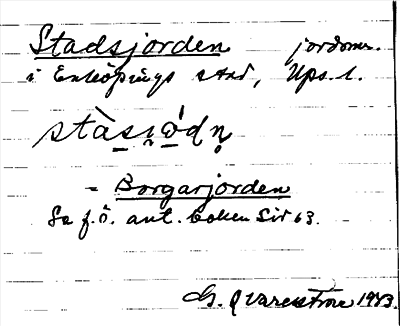 Stadsjorden jordomr.
i Enköpings stad, Ups. l.
stàsıó̱dn̥
= Borgarjorden
Se f. ö. ant. boken Sid 63.
G. Qvarnström 1943.